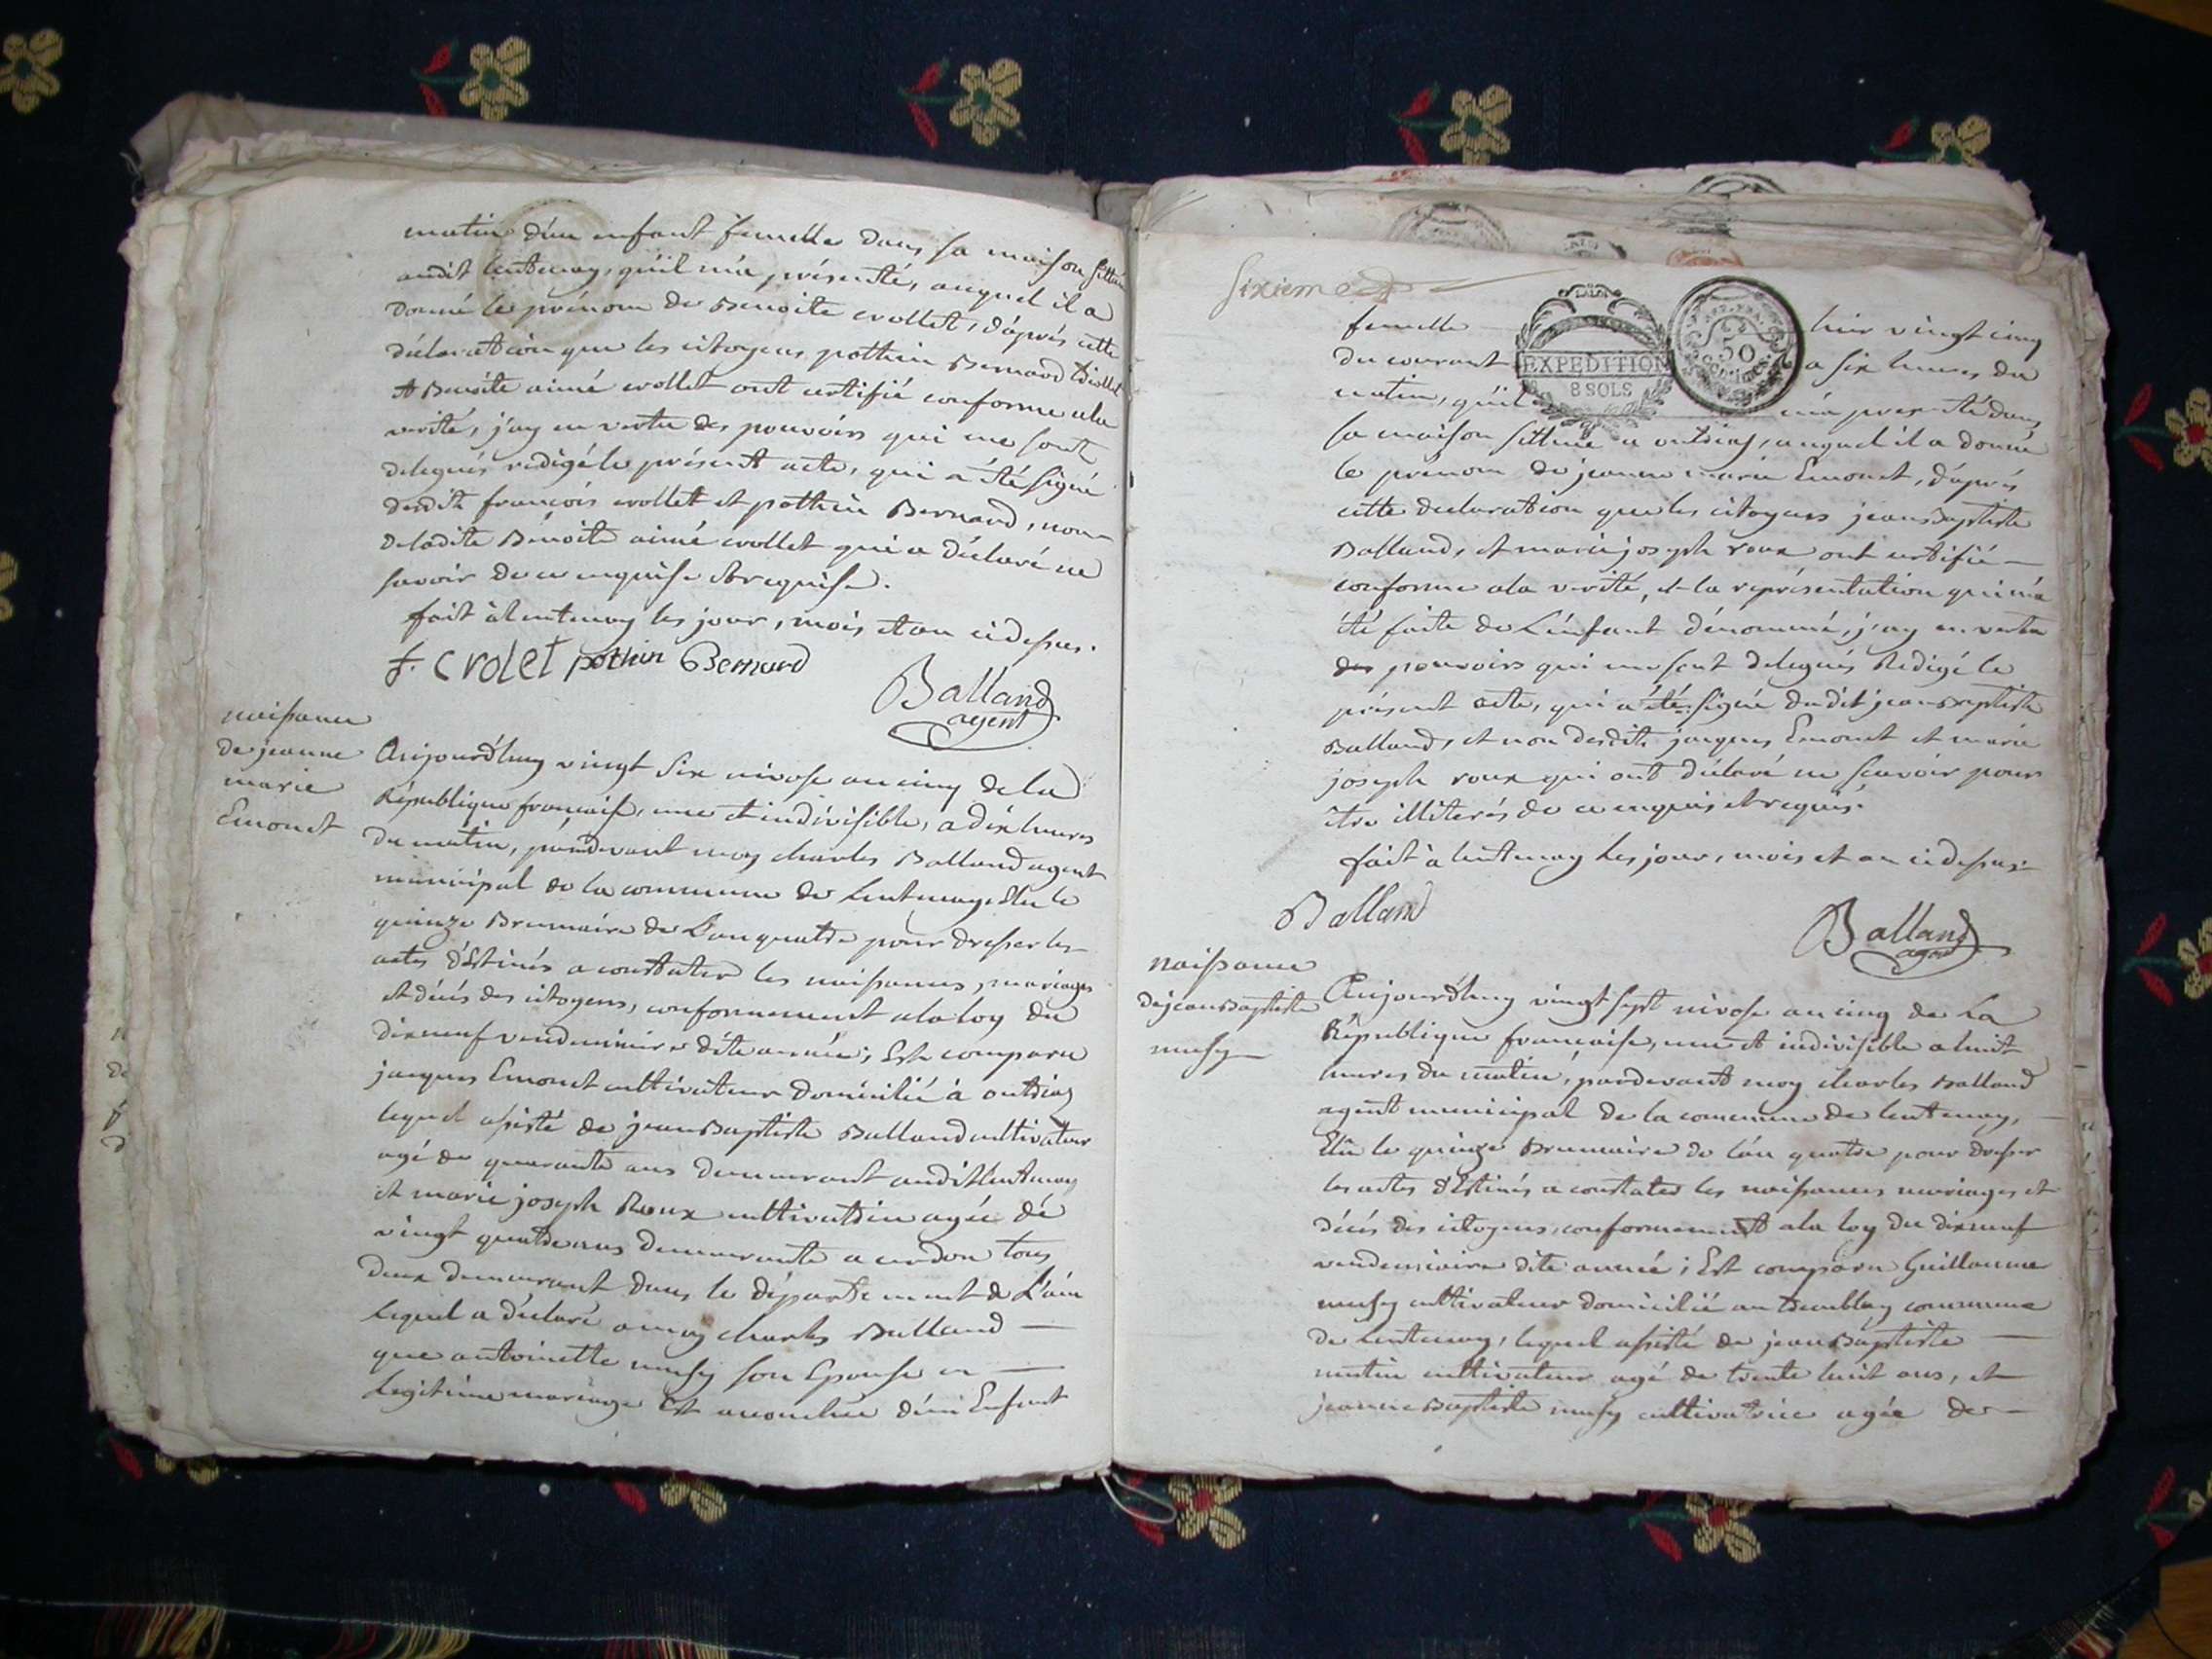 matin d'un enfant femelle dans sa maison sittuée
audit lentenay, qu'il m'a présenté, auquel il a
donné le prénom de Benoite crollet, d'après cette
déclaration que les citoyens pothin Bernard
et Benoite aimé crollet ont certifié conforme a la
verité, j'ay en vertu des pouvoirs qui me sont
delegués redigé le présent acte, qui a été signé
desdits francois crollet et pothin Bernard, non
de ladite Bénoite aimé crollet qui a déclaré ne
savoir de ce enquise et requise.
fait à lentenay les jour, mois et an ci dessus.
f. crolet pothin Bernard
Balland
agent
naissance
de jeanne
marie
Emonet
Aujourd'huy vingt six nivose an cinq de la
République francaise, une et indivisible, a dix heures
du matin, pardevant moy charles Balland agent
municipal de la commune de Lentenay élu le
quinze Brumaire de L'an quatre pour dresser les
actes déstinés a constater les naissances, mariages
et décés des citoyens, conformement a la loy du
dixneuf vendemiaire dite année; Est comparu
jacques Emonet cultivateur domicilié à outriaz
lequel assisté de jean Baptiste Balland cultivateur
agé de quarante ans demeurant audit lentenay
et marie joseph Roux cultivatrice agée de
vingt quatre ans demeurante a cerdon tous
deux demeurant dans le département de L'ain
lequel a déclaré a moy charles Balland
que antoinette musy son Epouse en
legitime mariage est accouchée d'un Enfant
sixieme
LA LOI
EXPEDITION
8 SOLS
50
centimes
femelle hier vingt cinq
du courant a six heures du
matin, qu'il m'a presenté dans
sa maison sittuée a outriaz, auquel il a donné
le prénom de jeanne marie Emonet, d'après
cette declaration que les citoyens jean Baptiste
Balland, et marie joseph roux ont certifié
conforme a la verité, et la représentation qui m'a
été faite de L'enfant dénommé, j'ay en vertu
des pouvoirs qui me sont delegués Redigé le
présent acte, qui a été signé dudit jean Baptiste
Balland, et non desdits jacques Emonet et marie
joseph roux qui ont déclaré ne scavoir pour
être illiterés de ce enquis et requis.
fait à lentenay les jour, mois et an ci dessus.
Balland
Balland
agent
naissance
de jean Baptiste
musy
Aujourd'huy vingt sept nivose an cinq de La
République francaise, une et indivisible a huit
heures du matin, pardevant moy charles Balland
agent municipal de la commune de lentenay,
Elu le quinze Brumaire de l'an quatre pour dresser
les actes déstinés a constater les naissances mariages et
décés des citoyens, conformement a la loy du dixneuf
vendemiaire dite année; Est comparu Guillaume
musy cultivateur domicilié au Tremblay commune
de Lentenay, lequel assisté de jean Baptiste
cultivateur agé de trente huit ans, et
jeanne Baptiste musy cultivatrice agée de